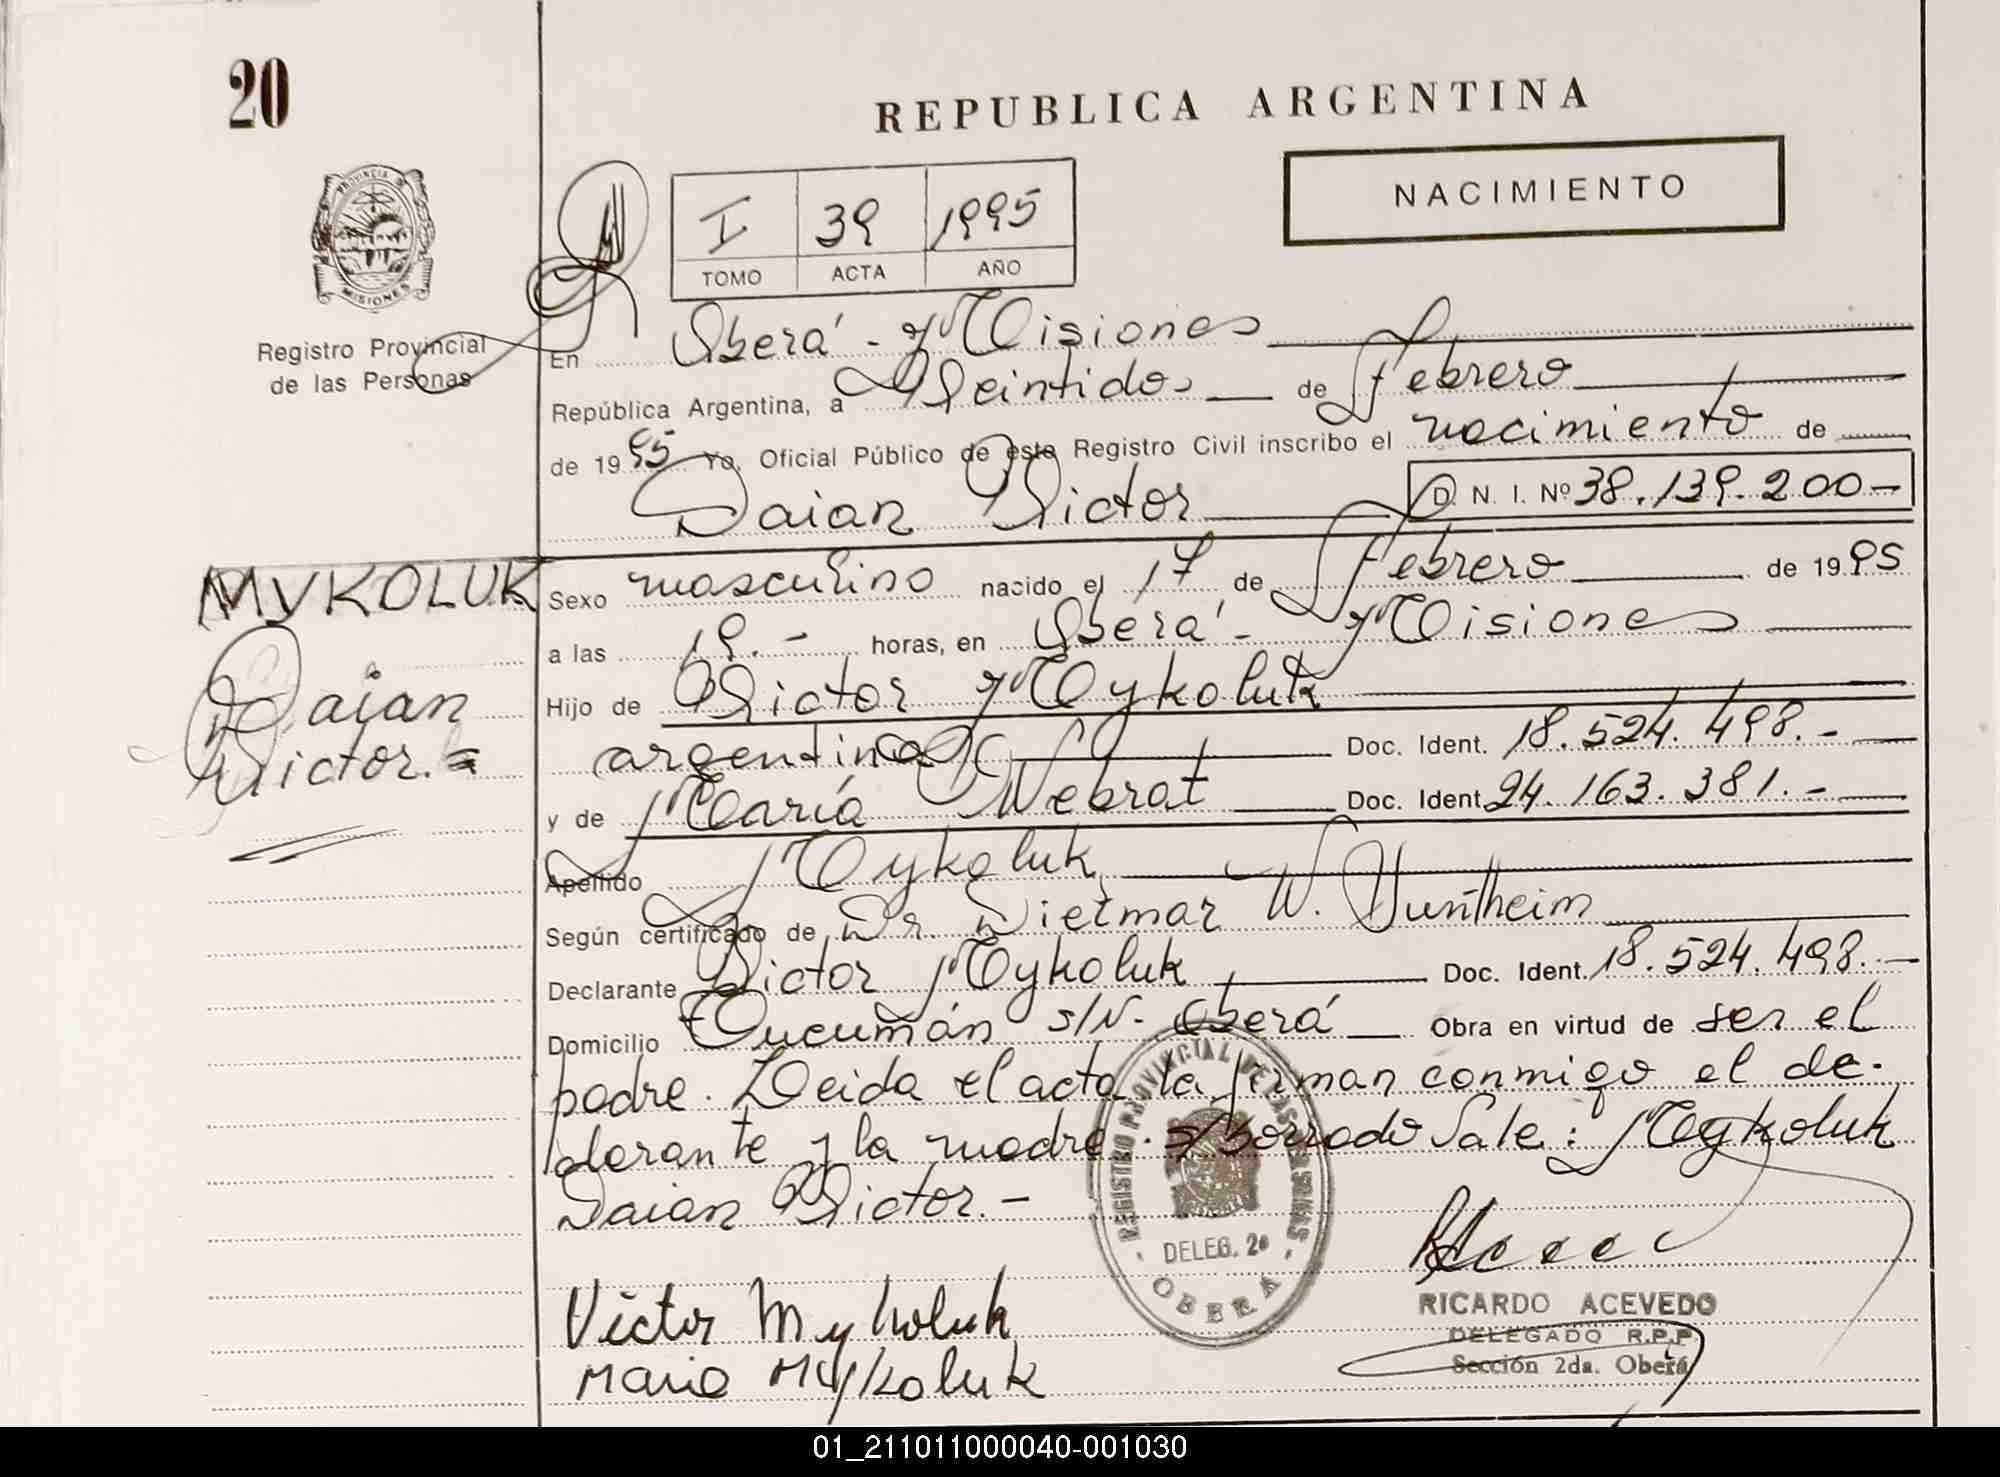 20
REPUBLICA ARGENTINA
NACIMIENTO
I 39 1995
TOMO ACTA AÑO
PROVINCIA DE
MISIONES
Registro Provincial
de las Personas
En Oberá - Misiones
República Argentina, a Veintidos de Febrero
de 1995 Yo, Oficial Público de este Registro Civil inscribo el nacimiento de
Daian Victor D. N. I. Nº 38.139.200-
MYKOLUK
Daian
Victor.=
Sexo masculino nacido el 17 de Febrero de 1995
a las 19.- horas, en Oberá - Misiones
Hijo de Victor Mykoluk
argentino Doc. Ident. 18.524.498.-
y de María Nebrat Doc. Ident. 24.163.381.-
Apellido Mykoluk
Según certificado de Dr. Dietmar W.
Declarante Victor Mykoluk Doc. Ident. 18.524.498.-
Domicilio Tucumán s/N- Oberá Obra en virtud de ser el
padre. Leida el acta la firman conmigo el de-
clarante y la madre. s/borrado Vale: Mykoluk
Daian Victor.-
REGISTRO PROVINCIAL DE LAS PERSONAS
DELEG. 2ª
OBERA
Victor Mykoluk
Maria Mykoluk
RICARDO ACEVEDO
DELEGADO R.P.P.
Sección 2da. Oberá
01_211011000040-001030